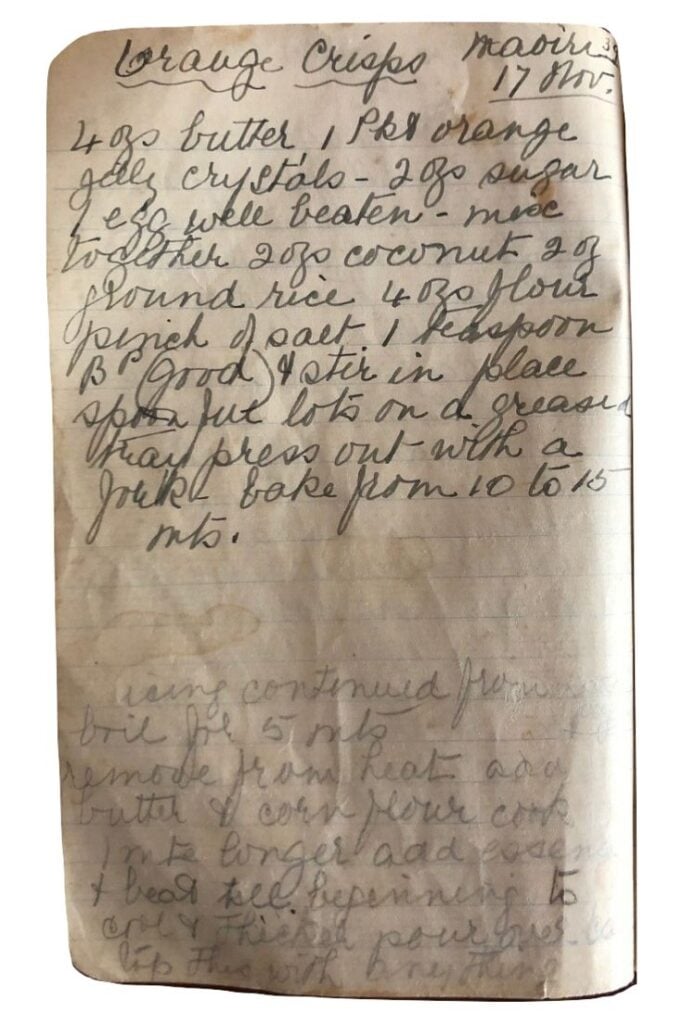 Orange Crisps Maoiri
17 Nov.
4 ozs butter, 1 Pkt orange
jelly crystals - 2 ozs sugar
1 egg well beaten - mix
together 2 ozs coconut 2 oz
ground rice 4 ozs flour
pinch of salt 1 teaspoon
BP (Good) & stir in place
spoon ful lots on a greased
tray press out with a
fork - bake from 10 to 15
mts.
icing continued from
boil for 5 mts
remove from heat add
butter & corn flour cook
1 mts longer add
& beat till beginning to
cool & thicken pour over
top this with anything